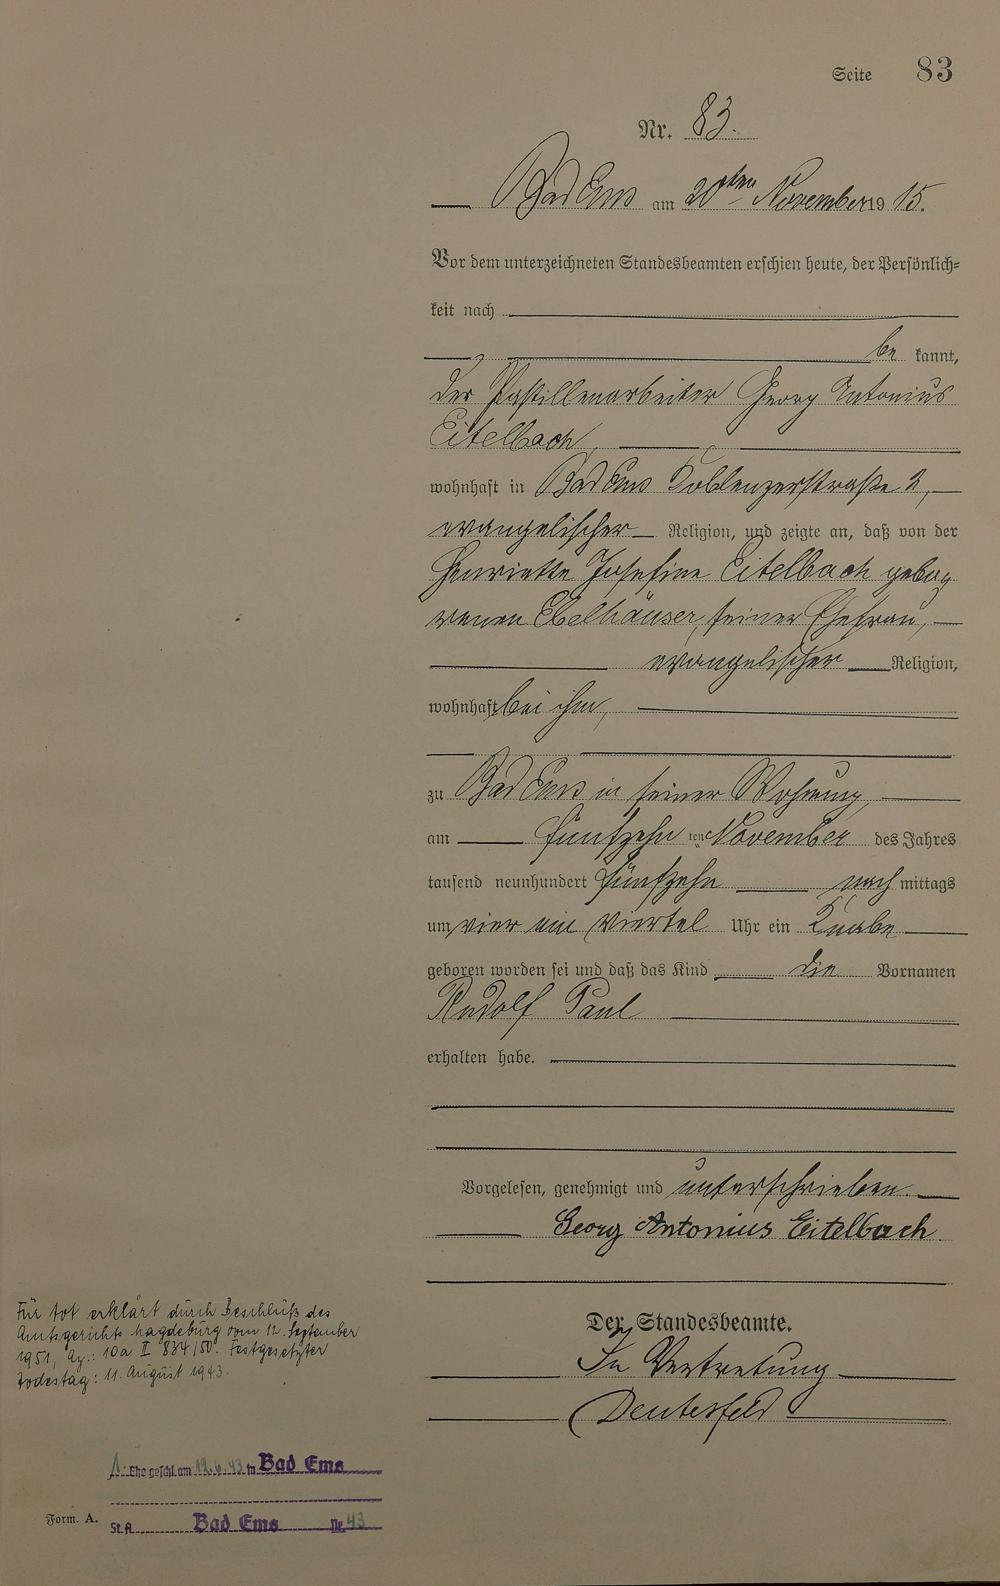 Seite 83
Nr. 83.
Bad Ems am 20ten November 1915.
Vor dem unterzeichneten Standesbeamten erschien heute, der Persönlich=
keit nach
be kannt,
der Pastillenarbeiter Georg Antonius
Eitelbach,
wohnhaft in Bad Ems Koblenzerstraße 2,
evangelischer Religion, und zeigte an, daß von der
Henriette Josefine Eitelbach gebo=
renen Ebelhäuser, seiner Ehefrau,
evangelischer Religion,
wohnhaft bei ihm,
zu Bad Ems in seiner Wohnung,
am fünfzehn ten November des Jahres
tausend neunhundert fünfzehn nach mittags
um vier ein viertel Uhr ein Knabe
geboren worden sei und daß das Kind die Vornamen
Rudolf Paul
erhalten habe.
Vorgelesen, genehmigt und unterschrieben.
Georg Antonius Eitelbach.
Der Standesbeamte.
In Vertretung
Deutesfeld
Für tot erklärt durch Beschluß des
Amtsgerichts Magdeburg vom 12. September
1951, Az.: 10a II 834/50. Festgesetzter
Todestag: 11. August 1943.
1. Ehe geschl. am 19.6.43 in Bad Ems
Form. A. St. A. Bad Ems Nr. 43